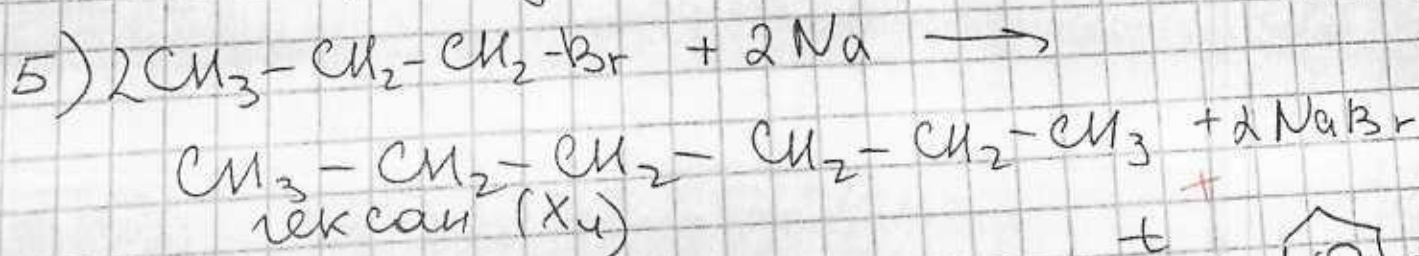 5) 2CH₃-CH₂-CH₂-Br + 2Na ⟶
CH₃-CH₂-CH₂-CH₂-CH₂-CH₃ + 2NaBr
гексан (X₄)
+
t